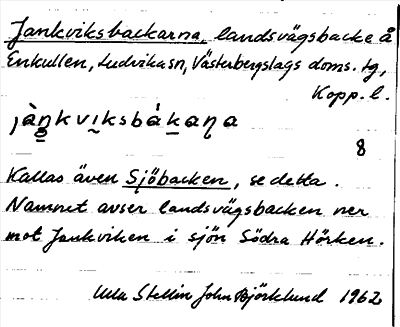 Jankviksbackarna, landsvägsbacke å
Enkullen, Ludvika sn, Västerbergslags doms. tg,
Kopp. l.
jàn̠kvi̠ksbák̠aꞃa
8
Kallas även Sjöbacken, se detta.
Namnet avser landsvägsbacken ner
mot Jankviken i sjön Södra Hörken.
Ulla Stellin John Björklund 1962